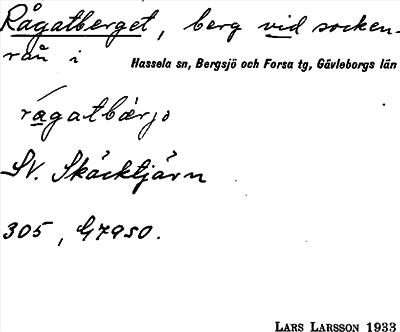 Rågatberget, berg vid socken-
rån i
Hassela sn, Bergsjö och Forsa tg, Gävleborgs län
rågatbärjo
SV. Skäcktjärn
305, G7950.
LARS LARSSON 1933